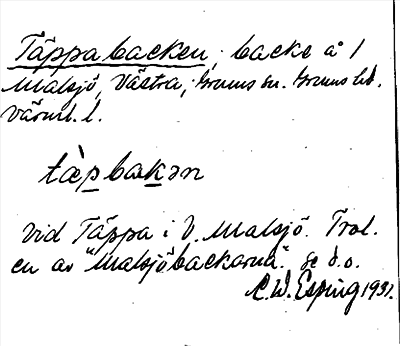 Täppabacken, backe å 1
Malsjö, Västra, Grums sn. Grums hd.
Värml. l.
tæ̀pbakən
vid Täppa i V. Malsjö. Trol.
en av "Malsjöbackarna". se d.o.
C.W. Esping 1931.